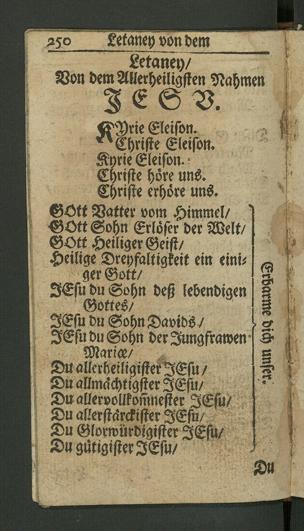 250 Letaney von dem
Letaney/
Von dem Allerheiligsten Nahmen
JESV.
KYrie Eleison.
Christe Eleison.
Kyrie Eleison.
Christe höre uns.
Christe erhöre uns.
GOtt Vatter vom Himmel/
GOtt Sohn Erlöser der Welt/
GOtt Heiliger Geist/
Heilige Dreyfaltigkeit ein eini-
ger Gott/
JEsu du Sohn deß lebendigen
Gottes/
JEsu du Sohn Davids/
JEsu du Sohn der Jungfrawen
Mariæ/
Du allerheiligister JEsu/
Du allmächtigster JEsu/
Du allervollkom̅nester JEsu/
Du allerstärckister JEsu/
Du Glorwürdigister JEsu/
Du gütigister JEsu/
Erbarme dich unser.
Du